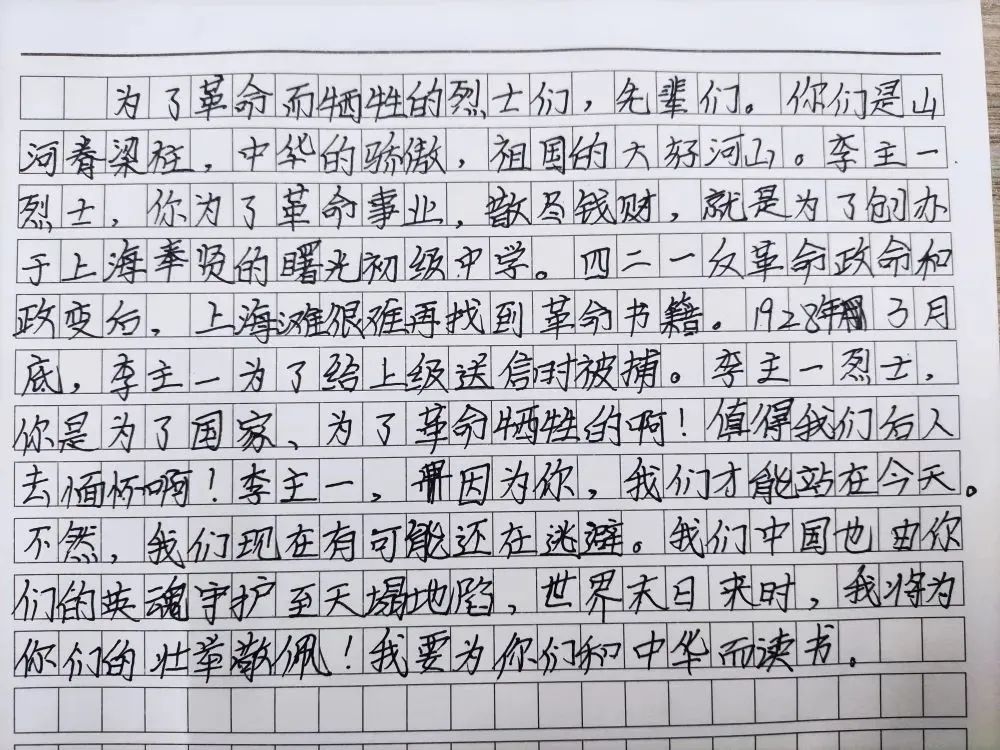 为了革命而牺牲的烈士们，先辈们。你们是山
河脊梁柱，中华的骄傲，祖国的大好河山。李主一
烈士，你为了革命事业，散尽钱财，就是为了创办
于上海奉贤的曙光初级中学。四二一反革命政命和
政变后，上海滩很难再找到革命书籍。1928年3月
底，李主一为了给上级送信时被捕。李主一烈士，
你是为了国家、为了革命牺牲的啊！值得我们后人
去缅怀啊！李主一，因为你，我们才能站在今天。
不然，我们现在有可能还在逃避。我们中国也由你
们的英魂守护至天塌地陷，世界末日来时，我将为
你们的壮举敬佩！我要为你们和中华而读书。